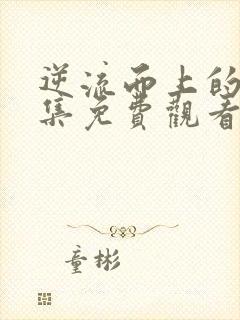 逆流而上的
集免費觀看
童彬